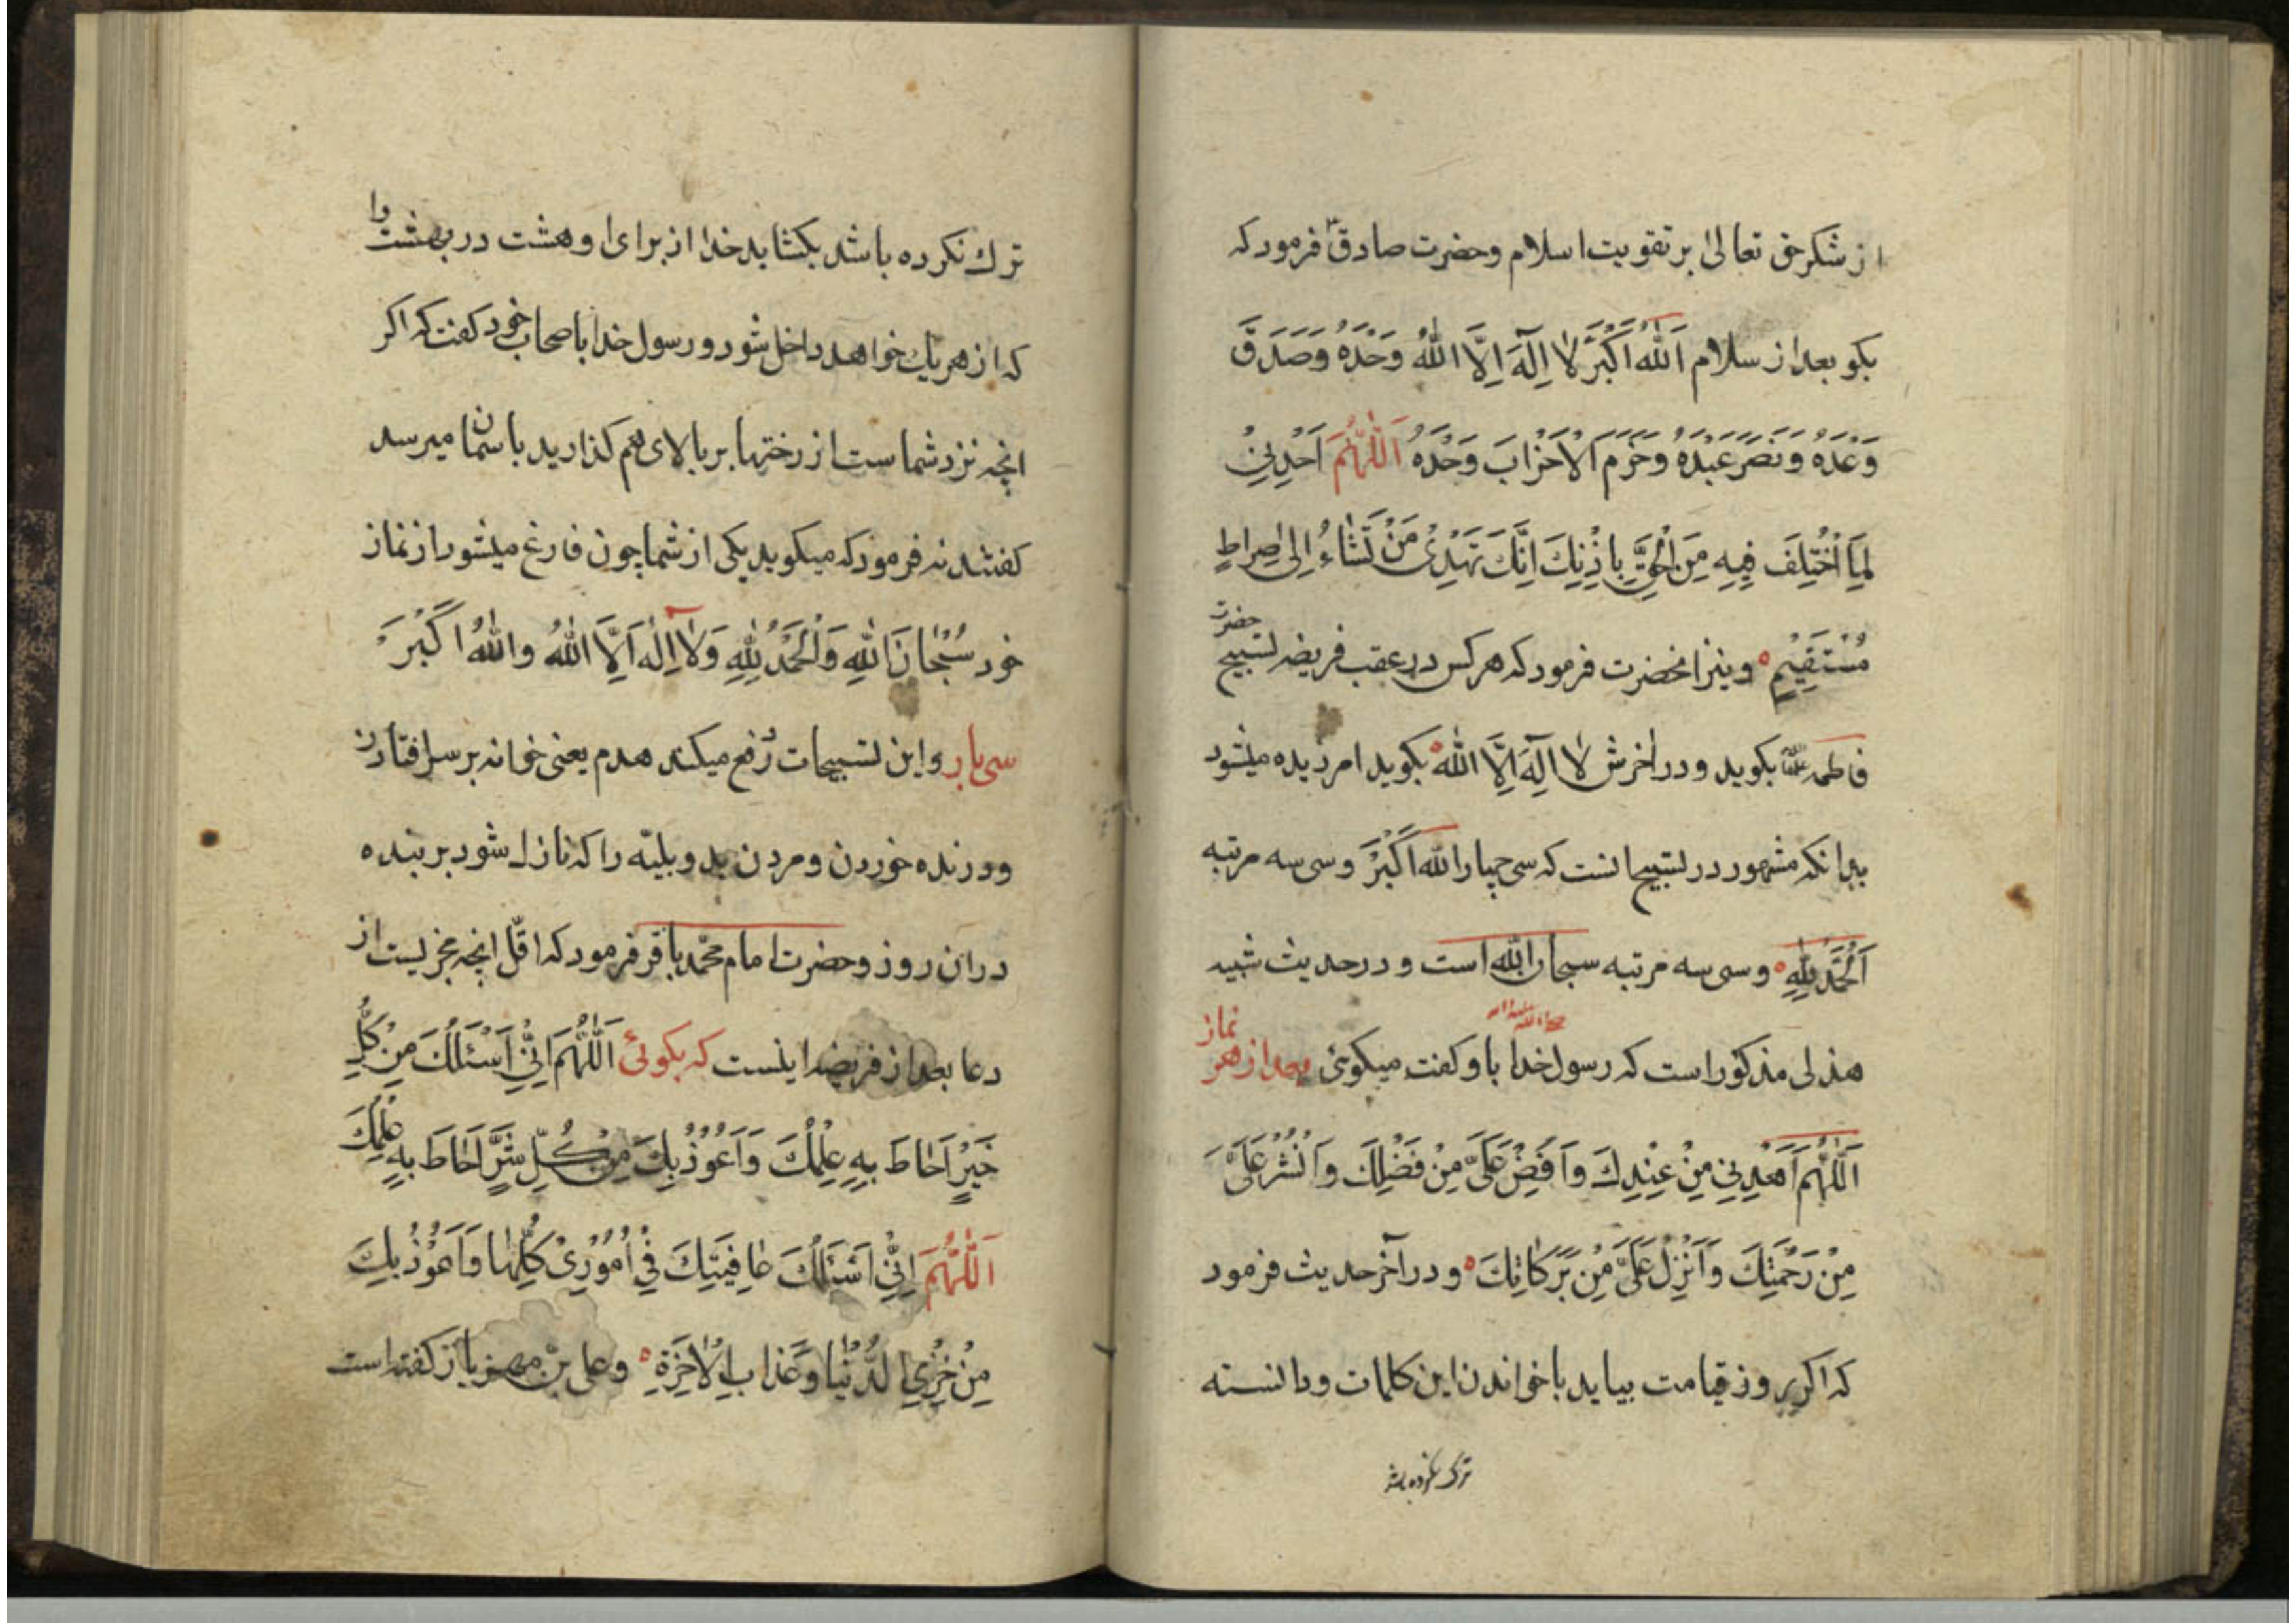 از شکر حق تعالیٰ بر تقویت اسلام وحضرت صادقؑ فرمود که
بکو بعد از سلام اَللهُ اَکْبَرُ لٰا اِلٰهَ اِلَّا اللهُ وَحْدَهُ وَصَدَقَ
وَعْدَهُ وَنَصَرَ عَبْدَهُ وَحَزَمَ الْاَحْزٰابَ وَحْدَهُ اَللّٰهُمَّ اَحْدِنِیْ
لِمَا اخْتُلِفَ فِیْهِ مِنَ الْحَقِّ بِاِذْنِكَ اِنَّكَ تَهْدِیْ مَنْ تَشٰاءُ اِلیٰ صِراطٍ
مُسْتَقِیْمٍ ونیز انحضرت فرمود که هرکس در عقب فریضه تسبیح حضرت
فاطمه بکوید ودر اخرش لٰا اِلٰهَ اِلَّا اللهُ بکوید امرزیده میشود
بدانکه مشهور در تسبیح انست که سی چهار الله اَکْبَرْ وسی سه مرتبه
اَلْحَمْدُ لِلّٰهِ وسی سه مرتبه سبحان الله است ودر حدیث شیبه
هذلی مذکور است که رسول خدا صلی الله علیه واله باو کفت میکوئی بعد از هر نماز
اَللّٰهُمَّ اَهْدِنِی مِنْ عِنْدِكَ وَاَفِضْ عَلَیَّ مِنْ فَضْلِكَ وَانْشُرْ عَلَیَّ
مِنْ رَحْمَتِكَ وَاَنْزِلْ عَلَیَّ مِنْ بَرَکٰاتِكَ ودر آخر حدیث فرمود
که اکر بروز قیامت بیاید باخواندن این کلمات ودانسته
ترك نکرده باشد
ترك نکرده باشد بکشاید خدا از برای او هشت در بهشت را
که از هریك خواهد داخل شود ورسول خدا باصحاب خود کفت که اکر
انچه نزد شماست از رختها بر بالای هم کذارید باسمان میرسد
کفتند نه فرمود که میکوید یکی از شما چون فارغ میشود از نماز
خود سُبْحٰانَ اللهِ وَالْحَمْدُ لِلّٰهِ وَلٰا اِلٰهَ اِلَّا اللهُ واللهُ اَکْبَرَ
سی بار واین تسبیحات رفع میکند هدم یعنی خوانه بر سر افتادن
ودرنده خوردن ومردن بد وبلیّه را که نازل شود بر بنده
دران روز وحضرت امام محمّد باقر فرمود که اقلّ انچه مجزیست از
دعا بعد از فریضه اینست که بکوئی اَللّٰهُمَّ اِنِّیْ اَسْئَلُكَ مِنْ کُلِّ
خَیْرٍ اَحٰاطَ بِهِ عِلْمُكَ وَاَعُوْذُ بِكَ مِنْ کُلِّ شَرٍّ اَحٰاطَ بِهِ عِلْمُكَ
اَللّٰهُمَّ اِنِّیْ اَسْئَلُكَ عٰافِیَتِكَ فِیْ اُمُوْرِیْ کُلِّهٰا وَاَعُوْذُ بِكَ
مِنْ خِزْیِ الدُّنْیٰا وَعَذٰابِ الْاٰخِرَةِ وعلی بن مهزیار کفته است